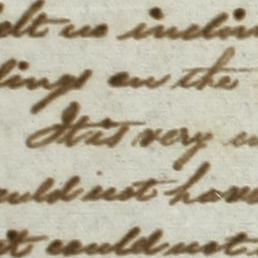 elt no inclin
lings on the
It is very
ould not have
it could not